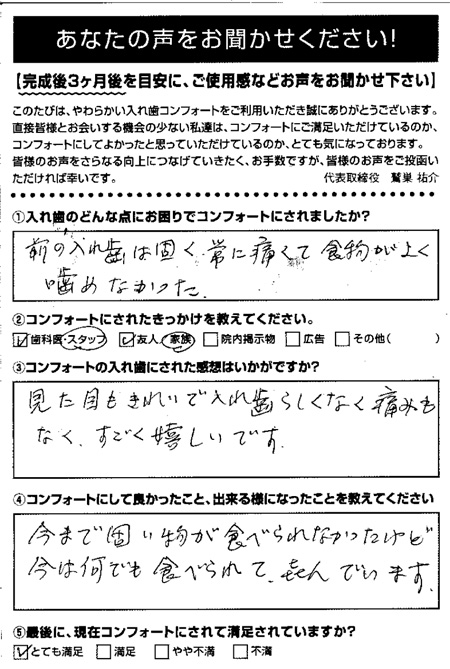 あなたの声をお聞かせください!
【完成後3ヶ月後を目安に、ご使用感などお声をお聞かせ下さい】
このたびは、やわらかい入れ歯コンフォートをご利用いただき誠にありがとうございます。
直接皆様とお会いする機会の少ない私達は、コンフォートにご満足いただけているのか、
コンフォートにしてよかったと思っていただけているのか、とても気になっております。
皆様のお声をさらなる向上につなげていきたく、お手数ですが、皆様のお声をご投函い
ただければ幸いです。 代表取締役 鷲巣 祐介
①入れ歯のどんな点にお困りでコンフォートにされましたか?
前の入れ歯は固く常に痛くて食物がよく
噛めなかった.
②コンフォートにされたきっかけを教えてください。
☑歯科医・スタッフ ☑友人・家族 □院内掲示物 □広告 □その他( )
③コンフォートの入れ歯にされた感想はいかがですか?
見た目もきれいで入れ歯らしくなく痛みも
なく、すごく嬉しいです.
④コンフォートにして良かったこと、出来る様になったことを教えてください
今まで固い物が食べられなかったけど
今は何でも食べられて、喜んでいます.
⑤最後に、現在コンフォートにされて満足されていますか?
☑とても満足 □満足 □やや不満 □不満